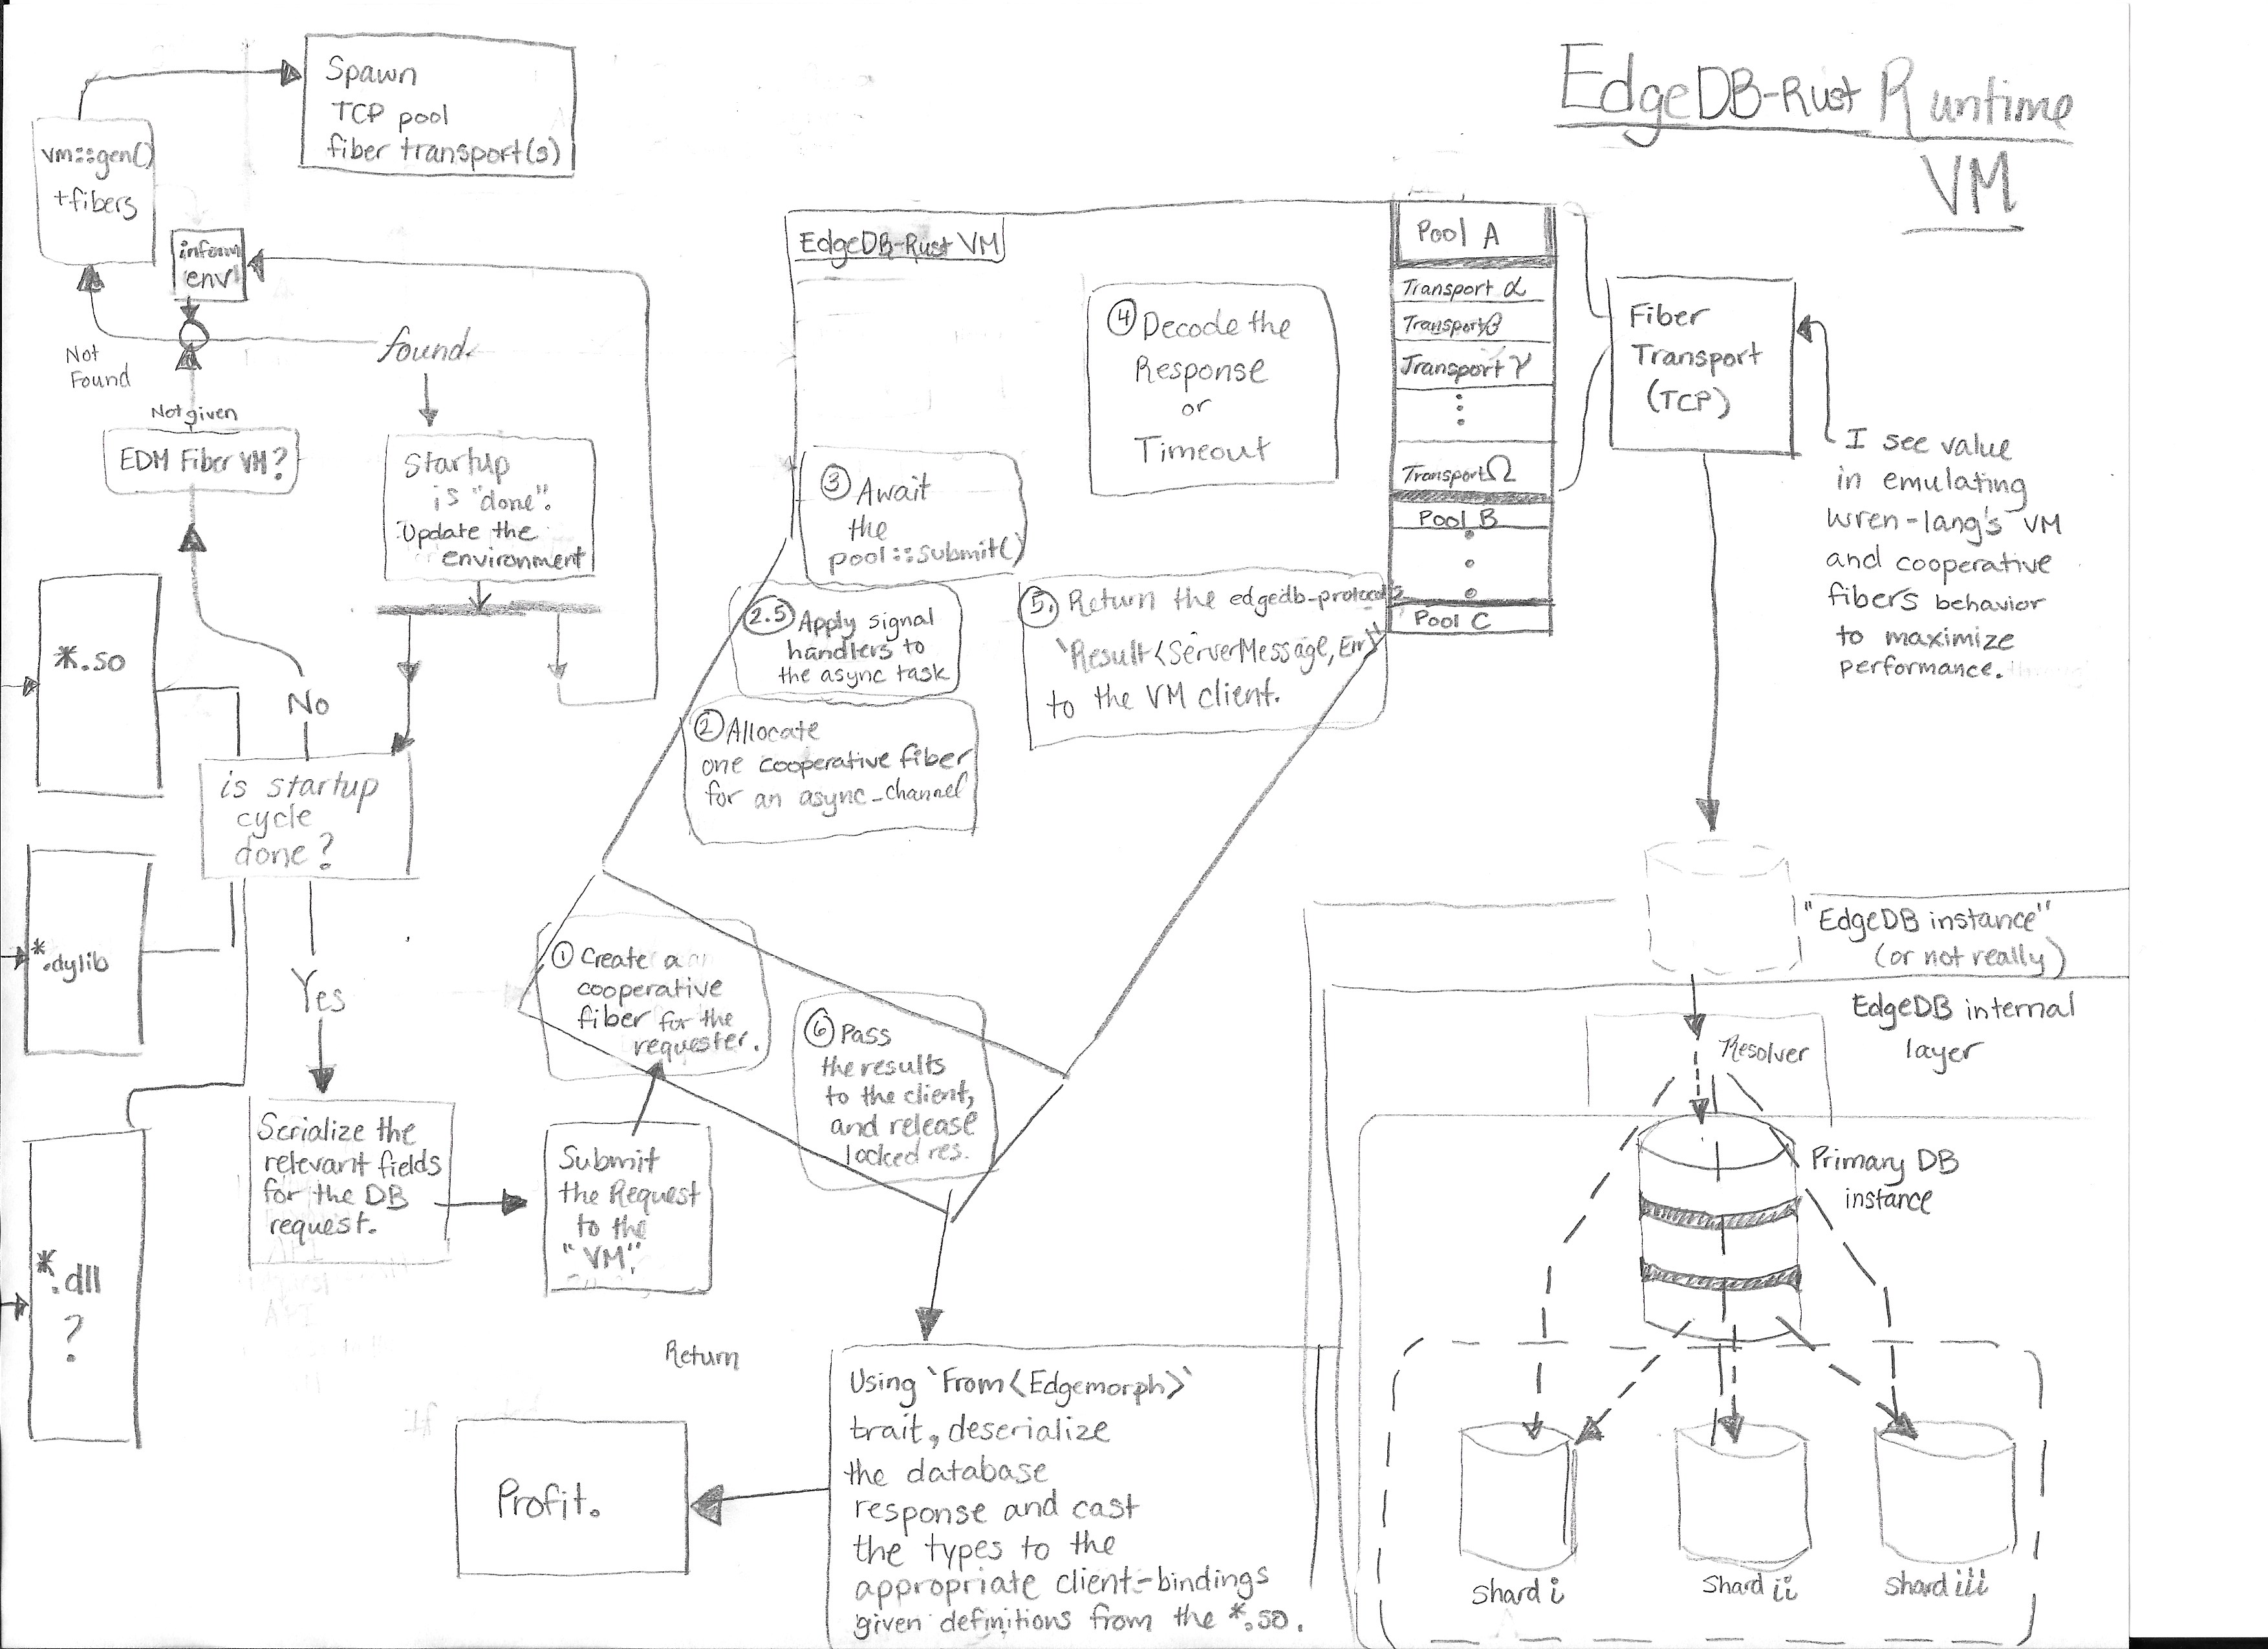 EdgeDB-Rust Runtime
VM
Spawn
TCP pool
fiber transport(s)
vm::gen()
+fibers
inform
env!
Not
Found
found.
Not given
EDM Fiber VM?
Startup
is "done".
Update the
environment
No
is startup
cycle
done?
Yes
*.so
*.dylib
*.dll
?
Serialize the
relevant fields
for the DB
request.
Submit
the Request
to the
"VM".
EdgeDB-Rust VM
① Create a
cooperative
fiber for the
requester.
② Allocate
one cooperative fiber
for an async_channel
2.5 Apply signal
handlers to
the async task
③ Await
the
pool::submit()
④ Decode the
Response
or
Timeout
5. Return the edgedb-protocol's
`Result<ServerMessage, Err>`
to the VM client.
⑥ Pass
the results
to the client,
and release
locked res.
Pool A
Transport α
Transport β
Transport γ
Transport Ω
Pool B
Pool C
Fiber
Transport
(TCP)
I see value
in emulating
wren-lang's VM
and cooperative
fibers behavior
to maximize
performance.
"EdgeDB instance"
(or not really)
EdgeDB internal
layer
Resolver
Primary DB
instance
Shard i
Shard ii
Shard iii
Return
Using `From<Edgemorph>`
trait, deserialize
the database
response and cast
the types to the
appropriate client-bindings
given definitions from the *.so.
Profit.